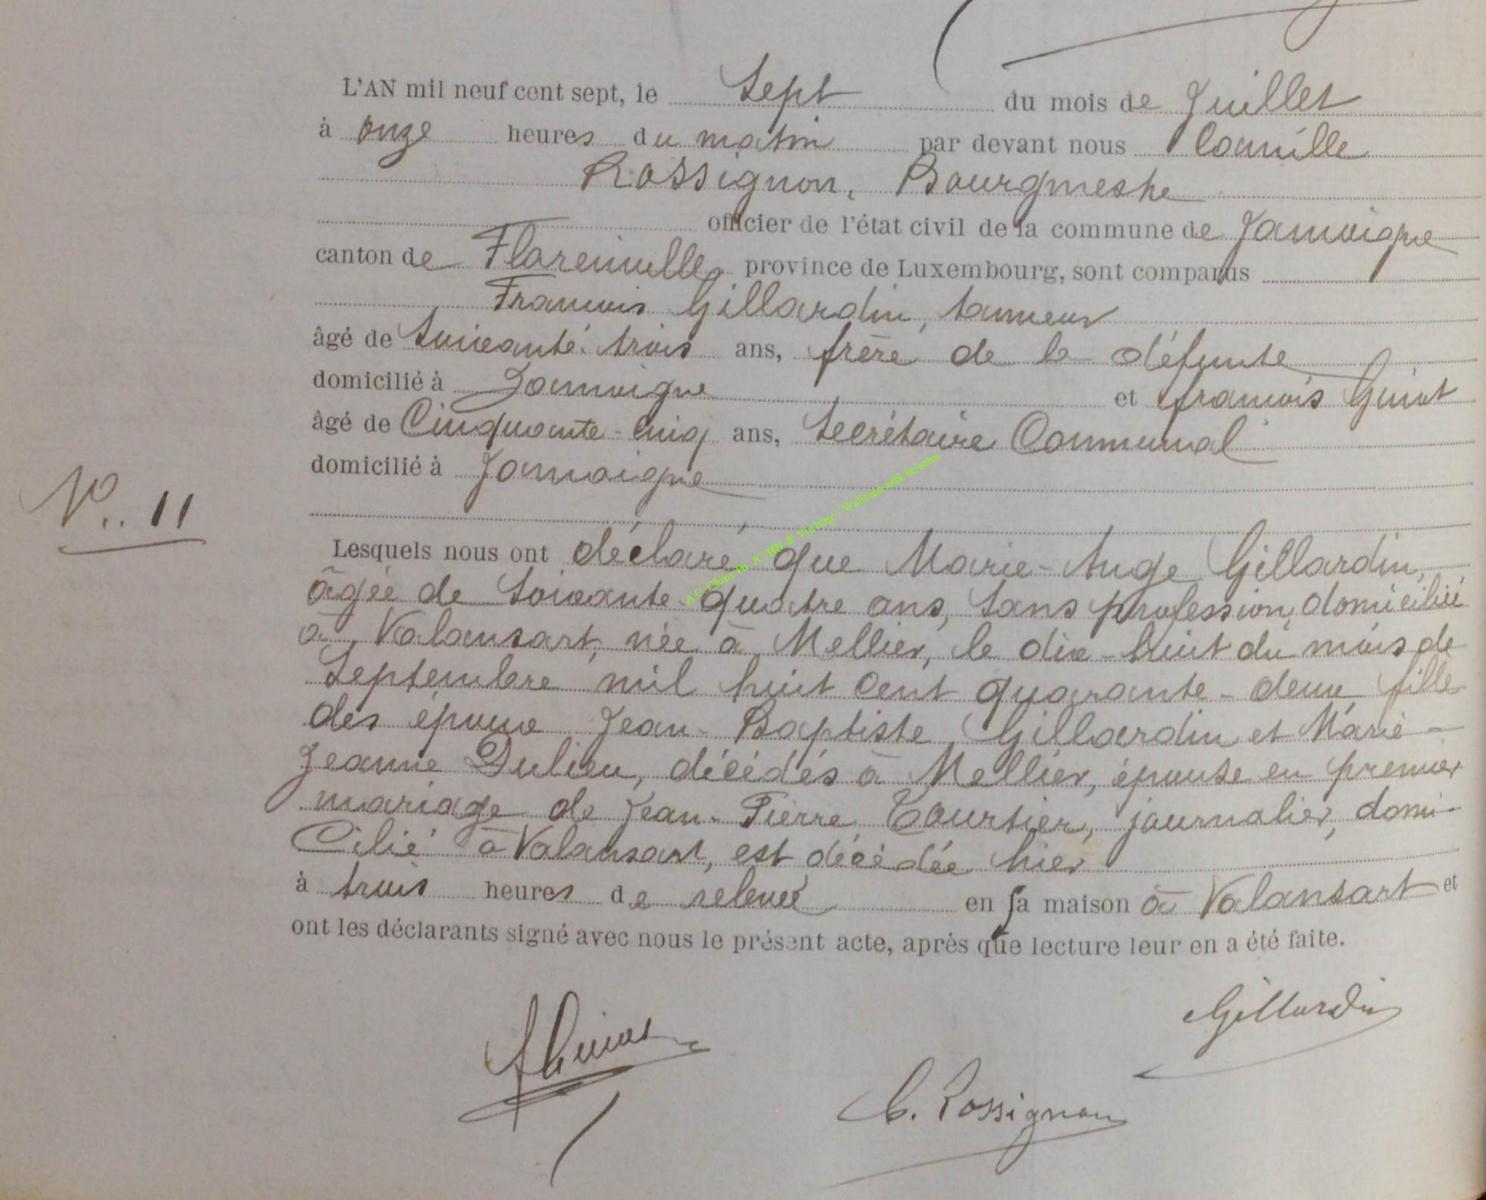 L'AN mil neuf cent sept, le Sept du mois de Juillet
à onze heures du matin par devant nous Camille
Rossignon, Bourgmestre
officier de l'état civil de la commune de Jamoigne
canton de Florenville, province de Luxembourg, sont comparus
François Gillardin, tanneur
âgé de soixante-trois ans, frère de la défunte
domicilié à Jamoigne et François Guiot
âgé de Cinquante-cinq ans, Secrétaire Communal
domicilié à Jamoigne
N°. 11
Lesquels nous ont déclaré que Marie-Ange Gillardin,
âgée de soixante-quatre ans, sans profession, domiciliée
à Valansart, née à Mellier, le dix-huit du mois de
Septembre mil huit cent quarante-deux fille
des époux Jean-Baptiste Gillardin et Marie-
Jeanne Dulieu, décédés à Mellier, épouse en premier
mariage de Jean-Pierre Toursier, journalier, domi-
cilié à Valansart, est décédée hier
à trois heures de relevée en sa maison à Valansart et
ont les déclarants signé avec nous le présent acte, après que lecture leur en a été faite.
Gillardin
F Guiot
C. Rossignon